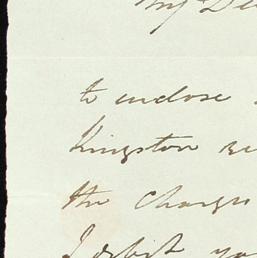 My De
to enclose
Kingston re
the Charges
I debit yo